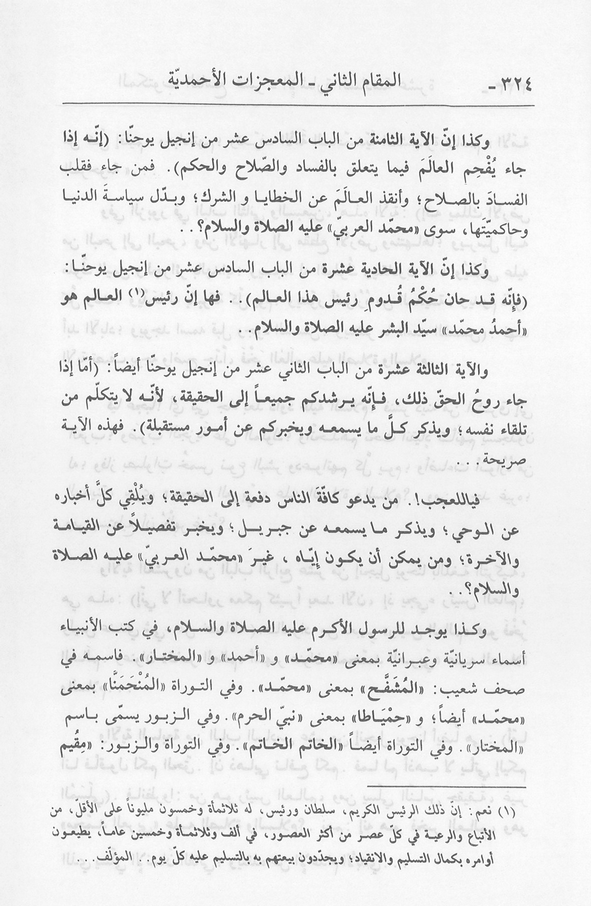 ٣٢٤- المقام الثاني - المعجزات الأحمديّة
وكذا إنّ الآية الثامنة من الباب السادس عشر من إنجيل يوحنّا: (إنّـه إذا
جاء يُفْحِم العالَمَ فيما يتعلق بالفساد والصّلاح والحكم). فمن جاء فقلب
الفسادَ بالصـلاح؛ وأنقذ العالَـمَ عن الخطايـا و الشرك؛ وبـدّل سياسـةَ الدنيـا
وحاكميّتها، سوى «محمّد العربي» عليه الصلاة والسلام؟..
وكذا إنّ الآية الحادية عشرة من الباب السادس عشر من إنجيل يوحنّـا:
(فإنّه قـد حان حُكْمُ قُـدومِ رئيس هذا العالم). فها إنّ رئيس(١) العالـم هو
«أحمدُ محمّد» سيّد البشر عليه الصلاة والسلام..
والآية الثالثة عشرة من الباب الثاني عشر من إنجيل يوحنّا أيضاً: (أمّا إذا
جاء روحُ الحقّ ذلك، فـإنّـه يـرشدكم جميعاً إلى الحقيقة، لأنّـه لا يتكلّـم من
تلقاء نفسه؛ ويذكر كـلَّ ما يسمعـه ويخبركم عن أمـور مستقبلة). فهذه الآيـة
صريحة...
فياللعجب!. من يدعو كافّةَ الناس دفعة إلى الحقيقة؛ ويُلْقِي كلَّ أخباره
عن الوحي؛ ويذكر مـا يسمعـه عن جبريـل؛ ويخبـر تفصيـلاً عن القيـامـة
والآخـرة؛ ومن يمكن أن يكـون إيّـاه ، غيـرَ «محمّـد العربيّ» عليـه الصـلاة
والسلام؟..
وكـذا يوجـد للرسول الأكـرم عليـه الصلاة والسلام، في كتب الأنبيـاء
أسماء سريانيّة وعبرانيّة بمعنى «محمّـد» و «أحمد» و «المختـار». فاسمـه في
صحف شعيب: «المُشَفَّح» بمعنى «محمّـد». وفي التـوراة «المُنْحَمَنَّا» بمعنى
«محمّـد» أيضاً؛ و «حِمْيَـاطا» بمعنى «نبيّ الحرم». وفي الزبـور يسمّى بـاسم
«المختار». وفي التوراة أيضـاً «الخاتم الخاتم». وفي التوراة والزبـور: «مقيم
(١) نعم: إنّ ذلك الرئيس الكريم، سلطان ورئيس، له ثلاثمأة وخمسون مليوناً على الأقلّ، من
الأتباع والرعية في كلّ عصر من أكثر العصور، في ألف وثلاثمأة وخمسين عامـاً، يطيعـون
أوامره بكمال التسليم والانقياد؛ ويجدّدون بيعتهم به بالتسليم عليه كلّ يوم.. المؤلّف...